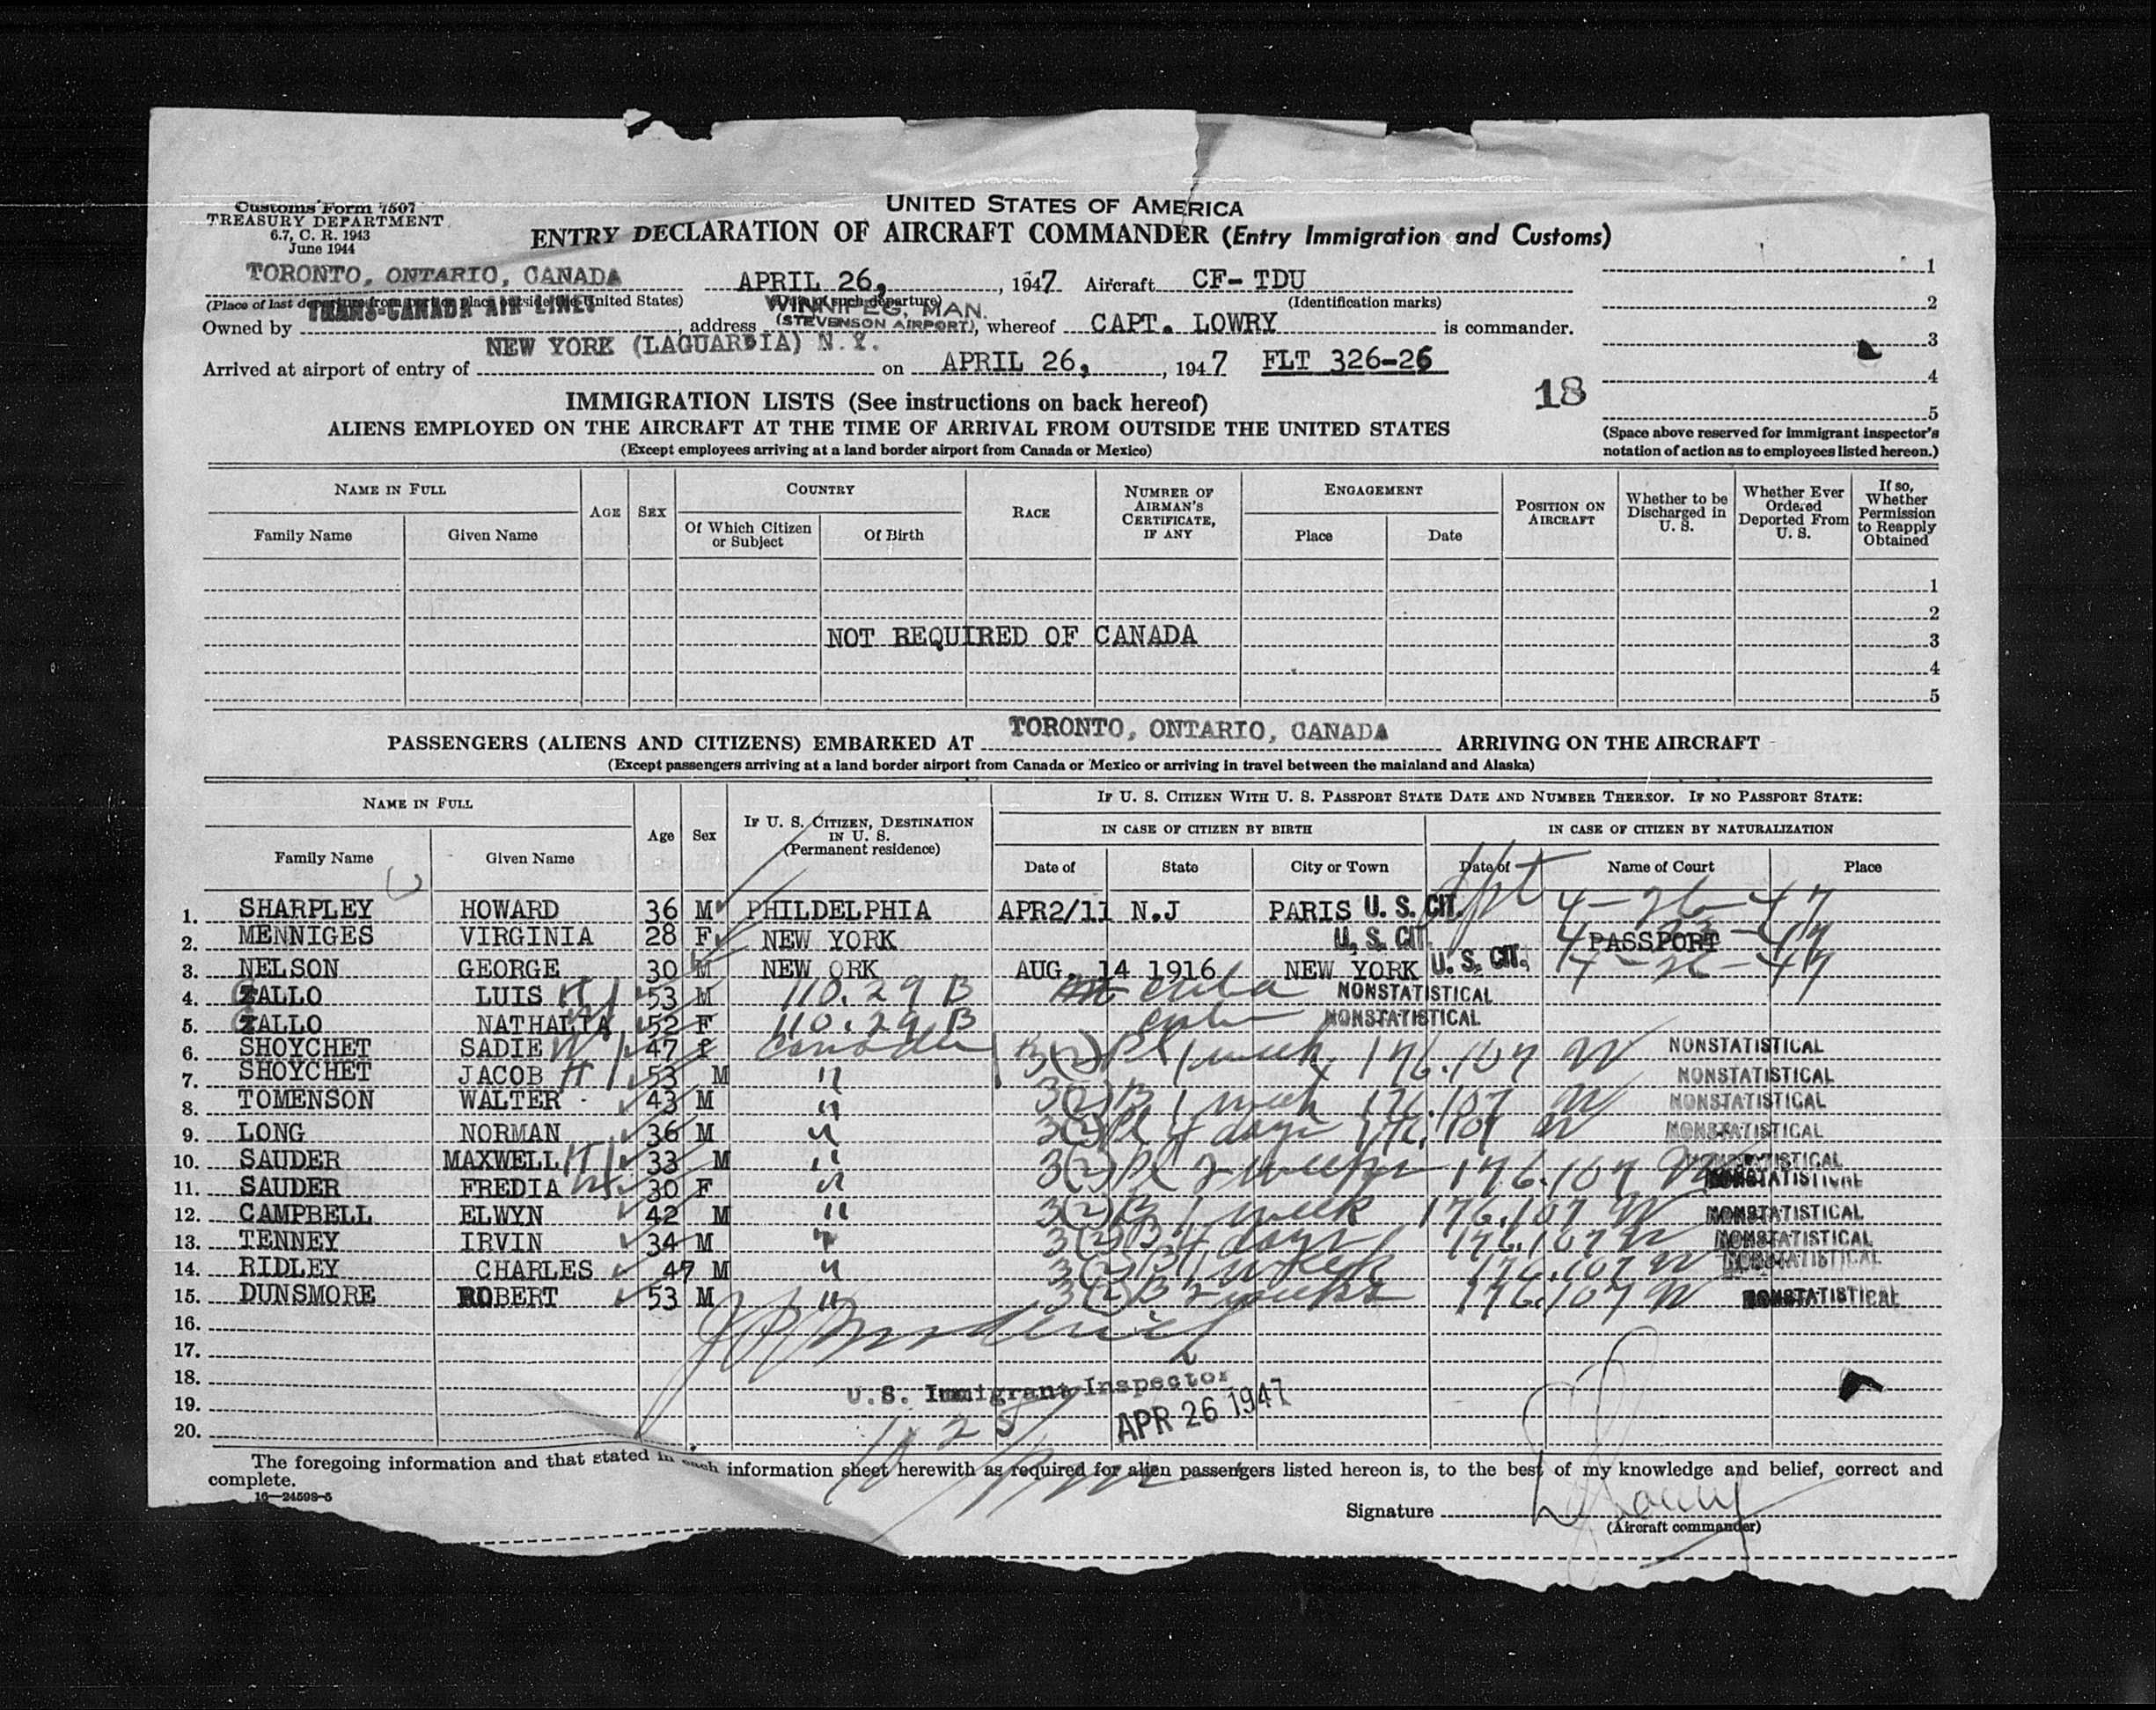 Customs Form 7507
TREASURY DEPARTMENT
6.7, C. R. 1943
June 1944
UNITED STATES OF AMERICA
ENTRY DECLARATION OF AIRCRAFT COMMANDER (Entry Immigration and Customs)
TORONTO, ONTARIO, CANADA APRIL 26, , 1947 Aircraft CF-TDU
(Place of last departure from port or place outside the United States) (Date of such departure) (Identification marks)
TRANS-CANADA AIR LINES WINNIPEG, MAN.
Owned by , address (STEVENSON AIRPORT), whereof CAPT. LOWRY is commander.
NEW YORK (LAGUARDIA) N.Y.
Arrived at airport of entry of on APRIL 26, , 1947 FLT 326-26
1
2
3
4
5
18
(Space above reserved for immigrant inspector's notation of action as to employees listed hereon.)
IMMIGRATION LISTS (See instructions on back hereof)
ALIENS EMPLOYED ON THE AIRCRAFT AT THE TIME OF ARRIVAL FROM OUTSIDE THE UNITED STATES
(Except employees arriving at a land border airport from Canada or Mexico)
NAME IN FULL AGE SEX COUNTRY RACE NUMBER OF AIRMAN'S CERTIFICATE, IF ANY ENGAGEMENT POSITION ON AIRCRAFT Whether to be Discharged in U. S. Whether Ever Ordered Deported From U. S. If so, Whether Permission to Reapply Obtained
Family Name Given Name Of Which Citizen or Subject Of Birth Place Date
1
2
NOT REQUIRED OF CANADA 3
4
5
PASSENGERS (ALIENS AND CITIZENS) EMBARKED AT TORONTO, ONTARIO, CANADA ARRIVING ON THE AIRCRAFT
(Except passengers arriving at a land border airport from Canada or Mexico or arriving in travel between the mainland and Alaska)
NAME IN FULL Age Sex IF U. S. CITIZEN, DESTINATION IN U. S. (Permanent residence) IF U. S. CITIZEN WITH U. S. PASSPORT STATE DATE AND NUMBER THEREOF. IF NO PASSPORT STATE:
IN CASE OF CITIZEN BY BIRTH IN CASE OF CITIZEN BY NATURALIZATION
Family Name Given Name Date of State City or Town Date of Name of Court Place
1. SHARPLEY HOWARD 36 M PHILDELPHIA APR2/11 N.J PARIS U. S. CIT. 4-26-47
2. MENNIGES VIRGINIA 28 F NEW YORK U. S. CIT PASSPORT
3. NELSON GEORGE 30 M NEW ORK AUG. 14 1916 NEW YORK U. S. CIT. 4-26-47
4. GALLO LUIS H 53 M 110.29 B Cuba NONSTATISTICAL
5. GALLO NATHALIA W 52 F 110.29 B NONSTATISTICAL
6. SHOYCHET SADIE W 47 f Canada 3(2) Pl 1 week 176.107 NONSTATISTICAL
7. SHOYCHET JACOB H 53 M " NONSTATISTICAL
8. TOMENSON WALTER 43 M " 3(2) B 1 week 176.107 NONSTATISTICAL
9. LONG NORMAN 36 M " 3(2) Pl 4 days 176.107 NONSTATISTICAL
10. SAUDER MAXWELL H 33 M " 3(2) Pl 2 weeks 176.107 NONSTATISTICAL
11. SAUDER FREDIA W 30 F " NONSTATISTICAL
12. CAMPBELL ELWYN 42 M " 3(2) B 1 week 176.107 NONSTATISTICAL
13. TENNEY IRVIN 34 M " 3(2) B 4 days 176.107 NONSTATISTICAL
14. RIDLEY CHARLES 47 M " 3(2) B 1 week 176.107 NONSTATISTICAL
15. DUNSMORE ROBERT 53 M " 3(2) B 2 weeks 176.107 NONSTATISTICAL
16.
17.
18.
U.S. Immigrant Inspector
19.
APR 26 1947
20.
The foregoing information and that stated in each information sheet herewith as required for alien passengers listed hereon is, to the best of my knowledge and belief, correct and
complete.
16—24598-5
Signature
(Aircraft commander)